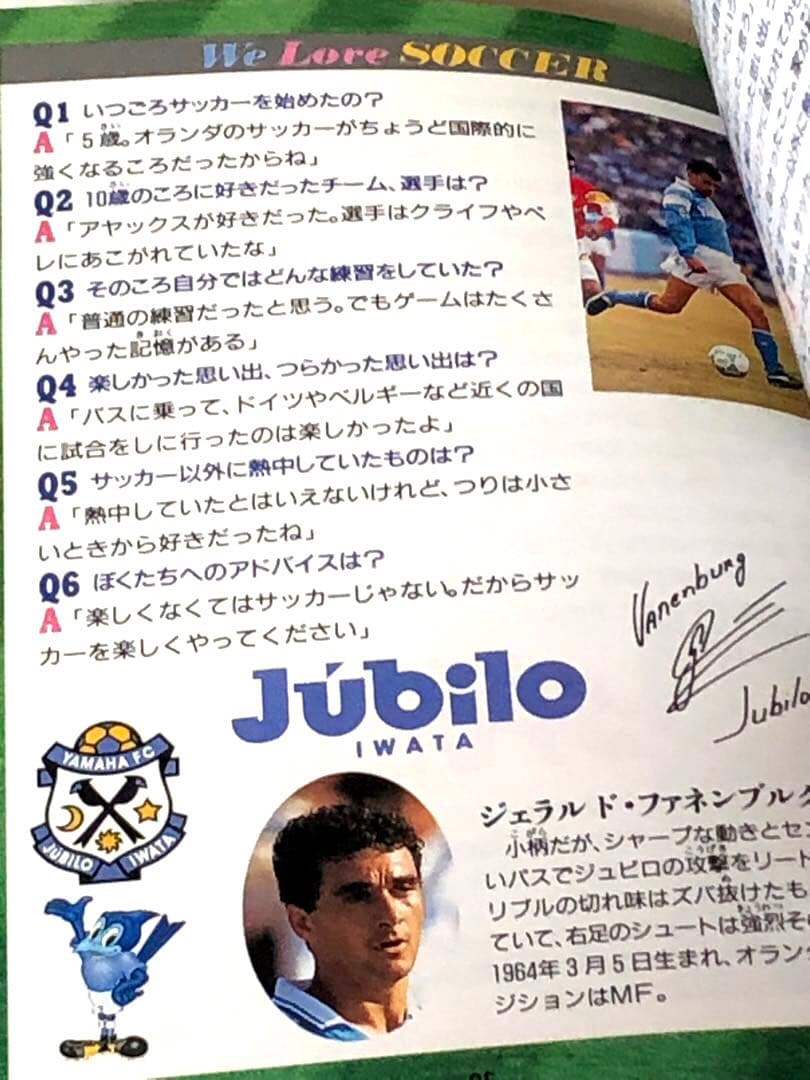 We Love SOCCER
Q1 いつごろサッカーを始めたの?
A「5歳。オランダのサッカーがちょうど国際的に
強くなるころだったからね」
Q2 10歳のころに好きだったチーム、選手は?
A「アヤックスが好きだった。選手はクライフやペ
レにあこがれていたな」
Q3 そのころ自分ではどんな練習をしていた?
A「普通の練習だったと思う。でもゲームはたくさ
んやった記憶がある」
Q4 楽しかった思い出、つらかった思い出は?
A「バスに乗って、ドイツやベルギーなど近くの国
に試合をしに行ったのは楽しかったよ」
Q5 サッカー以外に熱中していたものは?
A「熱中していたとはいえないけれど、つりは小さ
いときから好きだったね」
Q6 ぼくたちへのアドバイスは?
A「楽しくなくてはサッカーじゃない。だからサッ
カーを楽しくやってください」
Vanenburg
Jubilo
Júbilo
IWATA
YAMAHA FC
JÚBILO IWATA
ジェラルド・ファネンブルグ
小柄だが、シャープな動きとセン
いパスでジュビロの攻撃をリート
リブルの切れ味はズバ抜けたも
ていて、右足のシュートは強烈そ
1964年3月5日生まれ、オラン
ジションはMF。